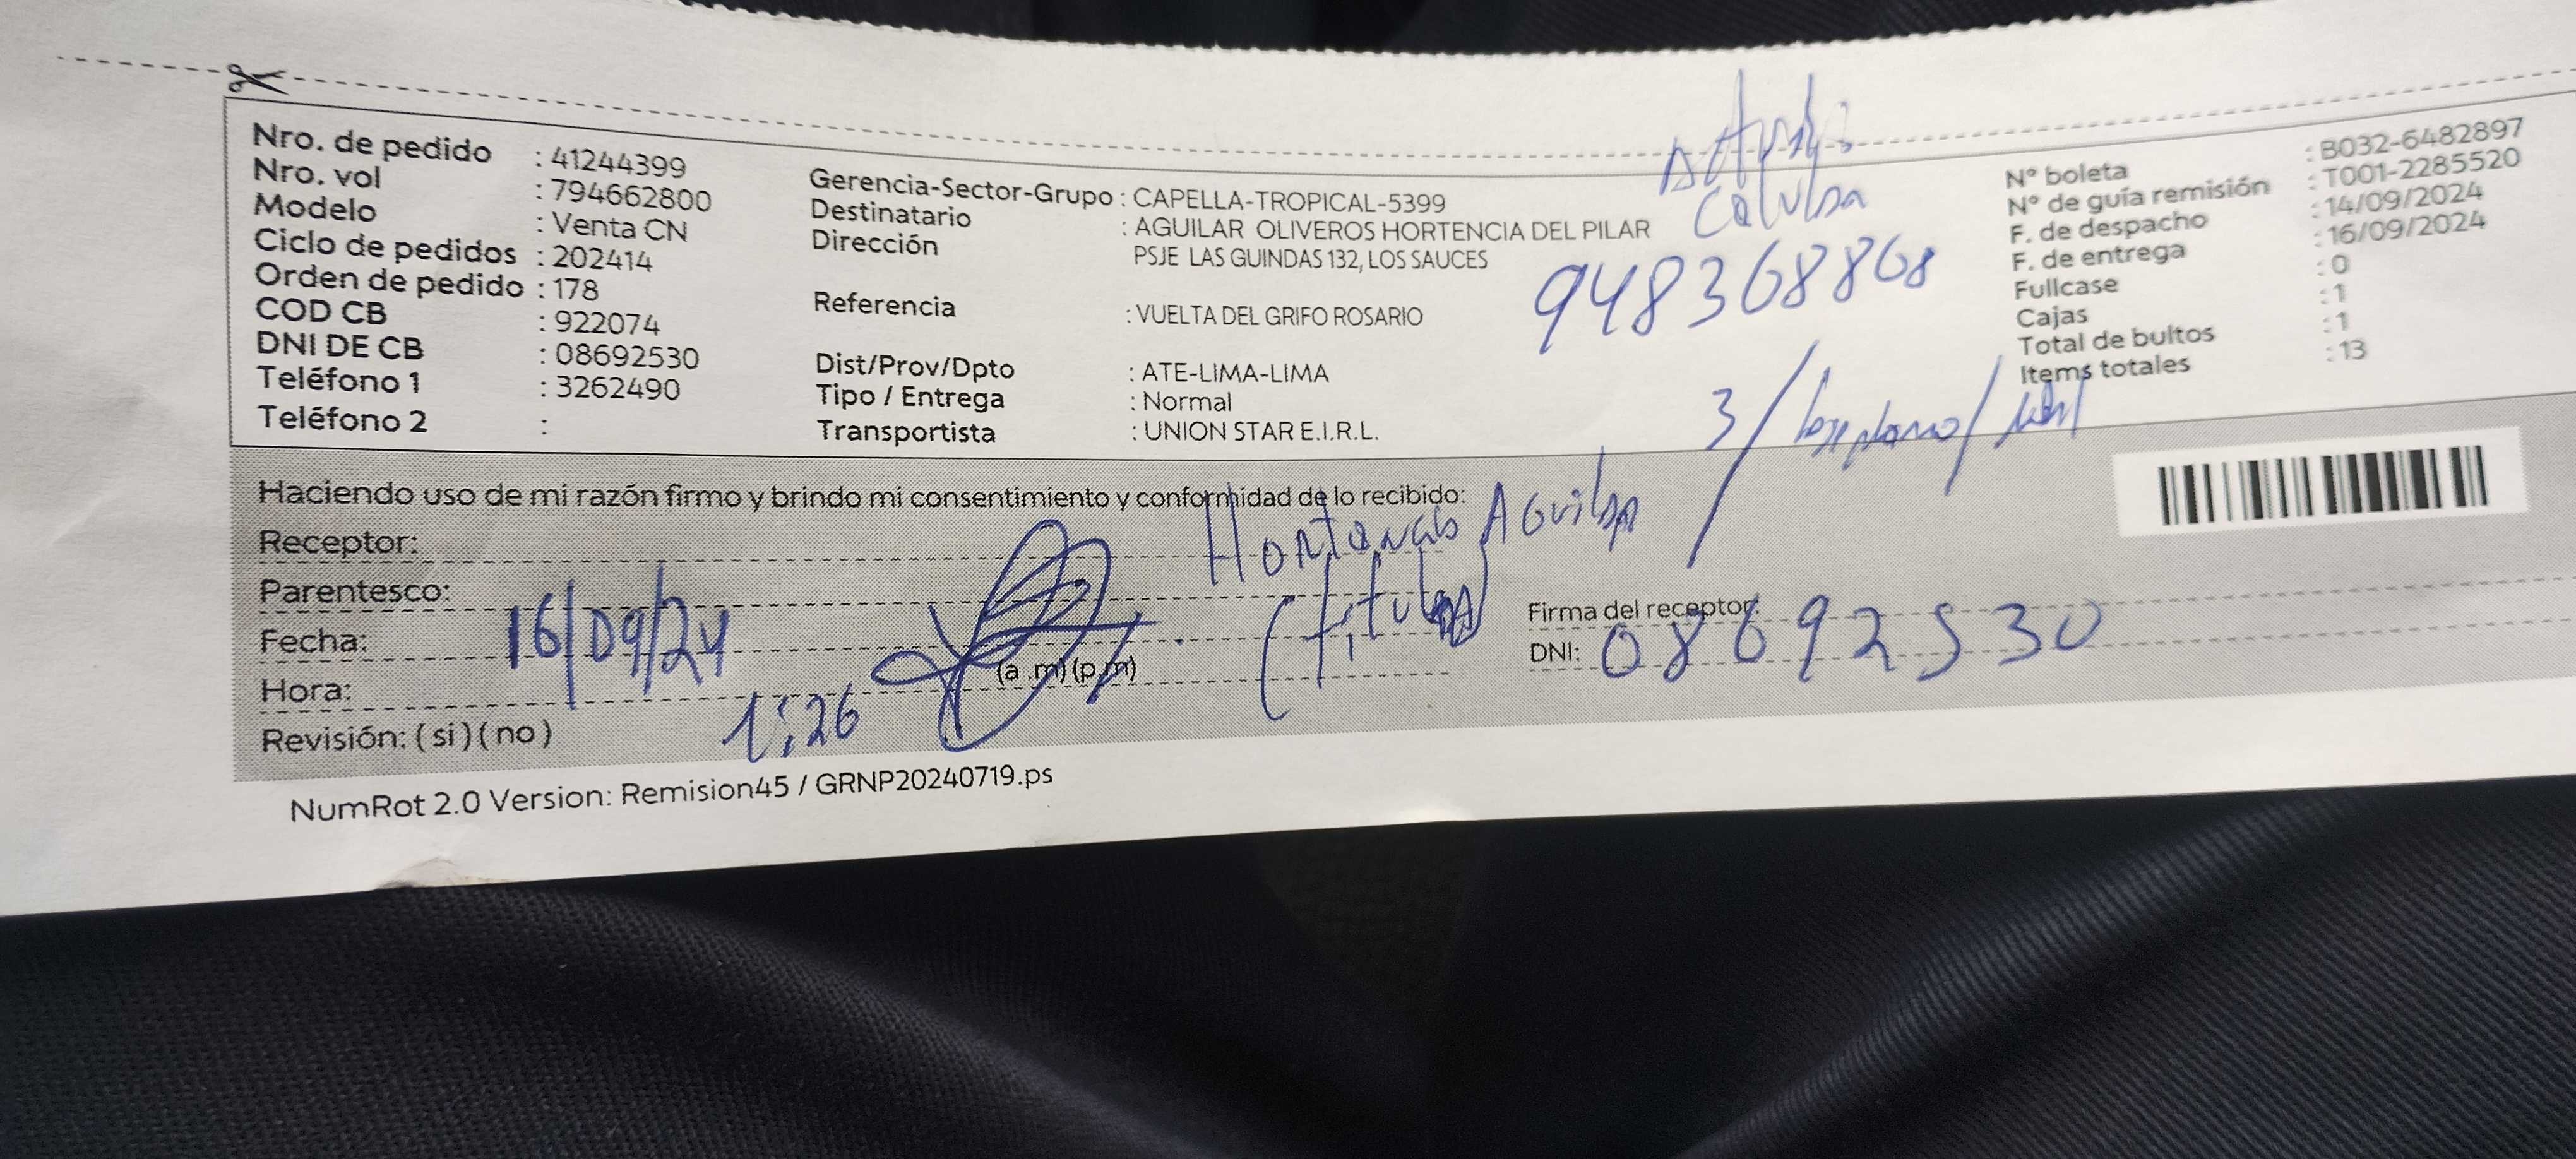 Nro. de pedido : 41244399
Nro. vol : 794662800
Modelo : Venta CN
Ciclo de pedidos : 202414
Orden de pedido : 178
COD CB : 922074
DNI DE CB : 08692530
Teléfono 1 : 3262490
Teléfono 2 :
Gerencia-Sector-Grupo : CAPELLA-TROPICAL-5399
Destinatario : AGUILAR OLIVEROS HORTENCIA DEL PILAR
Dirección PSJE LAS GUINDAS 132, LOS SAUCES
Referencia : VUELTA DEL GRIFO ROSARIO
Dist/Prov/Dpto : ATE-LIMA-LIMA
Tipo / Entrega : Normal
Transportista : UNION STAR E.I.R.L.
948368868
N° boleta : B032-6482897
N° de guía remisión : T001-2285520
F. de despacho : 14/09/2024
F. de entrega : 16/09/2024
Fullcase : 0
Cajas : 1
Total de bultos : 1
Items totales : 13
3/
Haciendo uso de mi razón firmo y brindo mi consentimiento y conformidad de lo recibido:
Receptor:
Aguilar
Parentesco:
(titular)
Fecha: 16/09/24
Hora: 1:26 (a .m) (p.m)
Revisión: ( si ) ( no )
Firma del receptor:
DNI: 08692530
NumRot 2.0 Version: Remision45 / GRNP20240719.ps